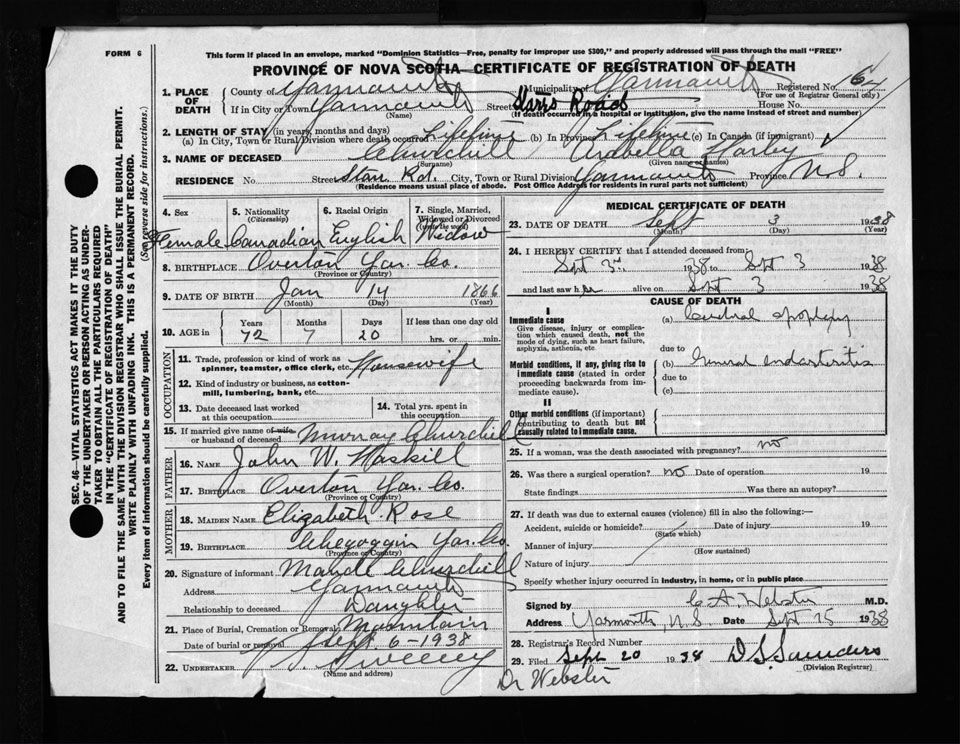 FORM 6
This form if placed in an envelope, marked "Dominion Statistics—Free, penalty for improper use $300," and properly addressed will pass through the mail "FREE"
PROVINCE OF NOVA SCOTIA CERTIFICATE OF REGISTRATION OF DEATH
SEC. 46—VITAL STATISTICS ACT MAKES IT THE DUTY
OF THE UNDERTAKER OR PERSON ACTING AS UNDERTAKER
TO OBTAIN ALL THE PARTICULARS REQUIRED
IN THE "CERTIFICATE OF REGISTRATION OF DEATH"
AND TO FILE THE SAME WITH THE DIVISION REGISTRAR WHO SHALL ISSUE THE BURIAL PERMIT.
WRITE PLAINLY WITH UNFADING INK. THIS IS A PERMANENT RECORD.
Every item of information should be carefully supplied. (See reverse side for instructions.)
1. PLACE OF DEATH County of Yarmouth Municipality of Yarmouth Registered No. 164
(For use of Registrar General only)
If in City or Town Yarmouth Street Road House No.
(Name) (If death occurred in a hospital or institution, give the name instead of street and number)
2. LENGTH OF STAY (in years, months and days)
(a) In City, Town or Rural Division where death occurred Lifetime (b) In Province Lifetime (c) In Canada (if immigrant)
3. NAME OF DECEASED Churchill Arabella Harley
(Surname) (Given name or names)
RESIDENCE No. Street Starr Rd. City, Town or Rural Division Yarmouth Province N.S.
(Residence means usual place of abode. Post Office Address for residents in rural parts not sufficient)
4. Sex 5. Nationality (Citizenship) 6. Racial Origin 7. Single, Married, Widowed or Divorced (write the word)
Female Canadian English Widow
8. BIRTHPLACE Overton Yar. Co.
(Province or Country)
9. DATE OF BIRTH Jan 14 1866
(Month) (Day) (Year)
10. AGE in Years Months Days If less than one day old
72 7 20 hrs. or min.
OCCUPATION
11. Trade, profession or kind of work as spinner, teamster, office clerk, etc. Housewife
12. Kind of industry or business, as cotton-mill, lumbering, bank, etc.
13. Date deceased last worked at this occupation
14. Total yrs. spent in this occupation
15. If married give name of wife or husband of deceased Murray Churchill
FATHER
16. NAME John W. Haskill
17. BIRTHPLACE Overton Yar. Co.
(Province or Country)
MOTHER
18. MAIDEN NAME Elizabeth Rose
19. BIRTHPLACE Chegoggin Yar. Co.
(Province or Country)
20. Signature of informant Maydll Churchill
Address Yarmouth
Relationship to deceased Daughter
21. Place of Burial, Cremation or Removal Mountain
Date of burial or removal Sept 6-1938
22. UNDERTAKER Sweeney
(Name and address)
MEDICAL CERTIFICATE OF DEATH
23. DATE OF DEATH Sept 3 1938
(Month) (Day) (Year)
24. I HEREBY CERTIFY that I attended deceased from:
Sept 3rd 1938 to Sept 3 1938
and last saw her alive on Sept 3 1938
CAUSE OF DEATH
I
Immediate cause (a) Cerebral apoplexy
Give disease, injury or complication which caused death, not the mode of dying, such as heart failure, asphyxia, asthenia, etc.
due to
Morbid conditions, if any, giving rise to immediate cause (stated in order proceeding backwards from immediate cause). (b) General endarteritis
due to
(c)
II
Other morbid conditions (if important) contributing to death but not causally related to immediate cause.
25. If a woman, was the death associated with pregnancy? no
26. Was there a surgical operation? no Date of operation 19
State findings Was there an autopsy?
27. If death was due to external causes (violence) fill in also the following:—
Accident, suicide or homicide? Date of injury 19
(State which)
Manner of injury
(How sustained)
Nature of injury
Specify whether injury occurred in industry, in home, or in public place
Signed by C A. Webster M.D.
Address Yarmouth, N.S. Date Sept 15 1938
28. Registrar's Record Number
29. Filed Sept 20 1938 D S Saunders
(Division Registrar)
Dr Webster